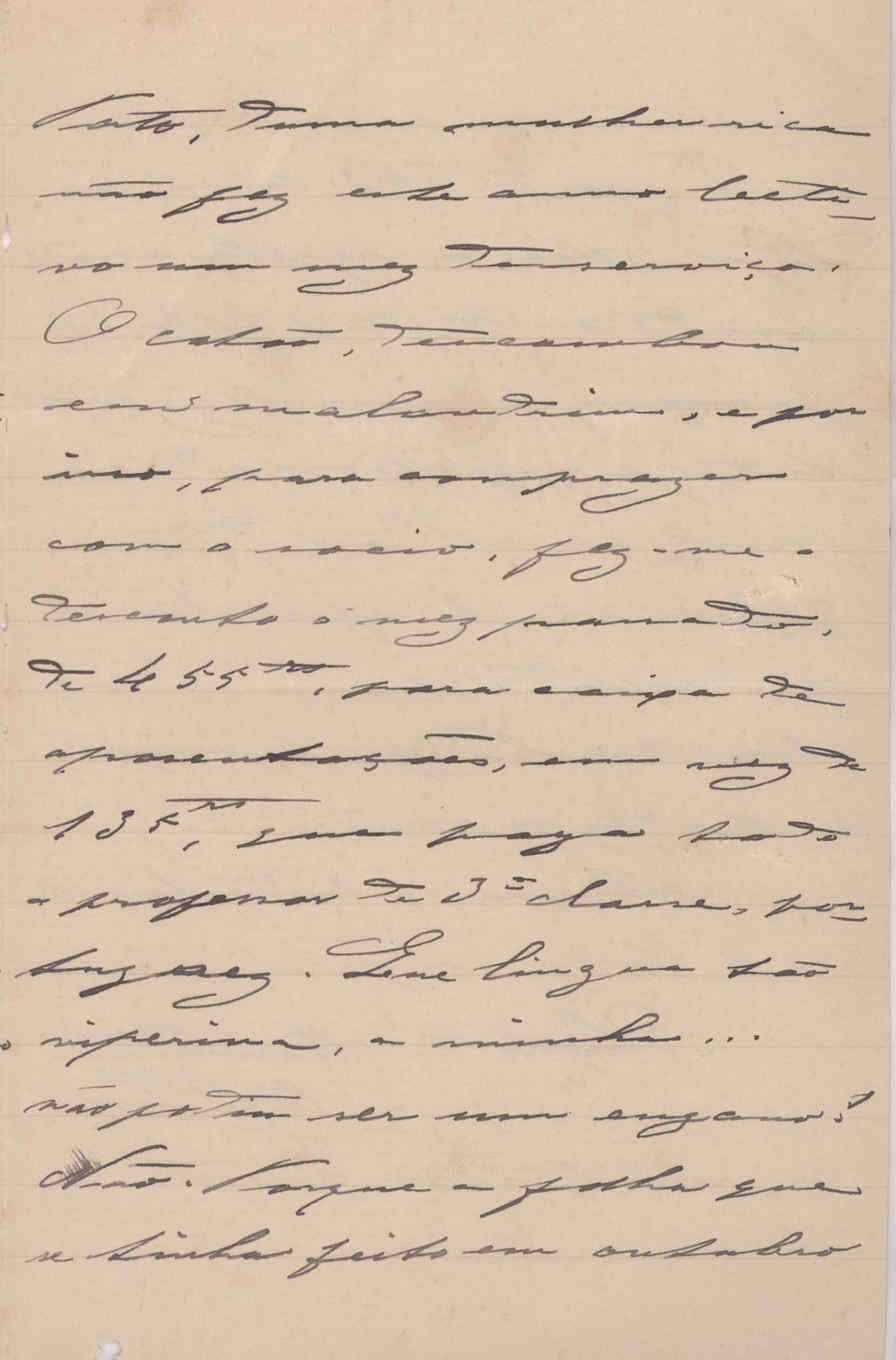 Porto, duma mulher rica
não fez este anno lecti-
vo um mez de serviço.
O catão, descambou
em malandrim, e por
isso, para comprazer
com o socio, fez-me o
desconto o mez passado,
de 455rs, para caixa de
aposentações, em vez de
135rs, que paga todo
o professor de 3ª classe, por-
tuguez. Esse lingua tão
viperina, a minha...
não podia ser um engano?
Não. Porque a folha que
se tinha feito em outubro